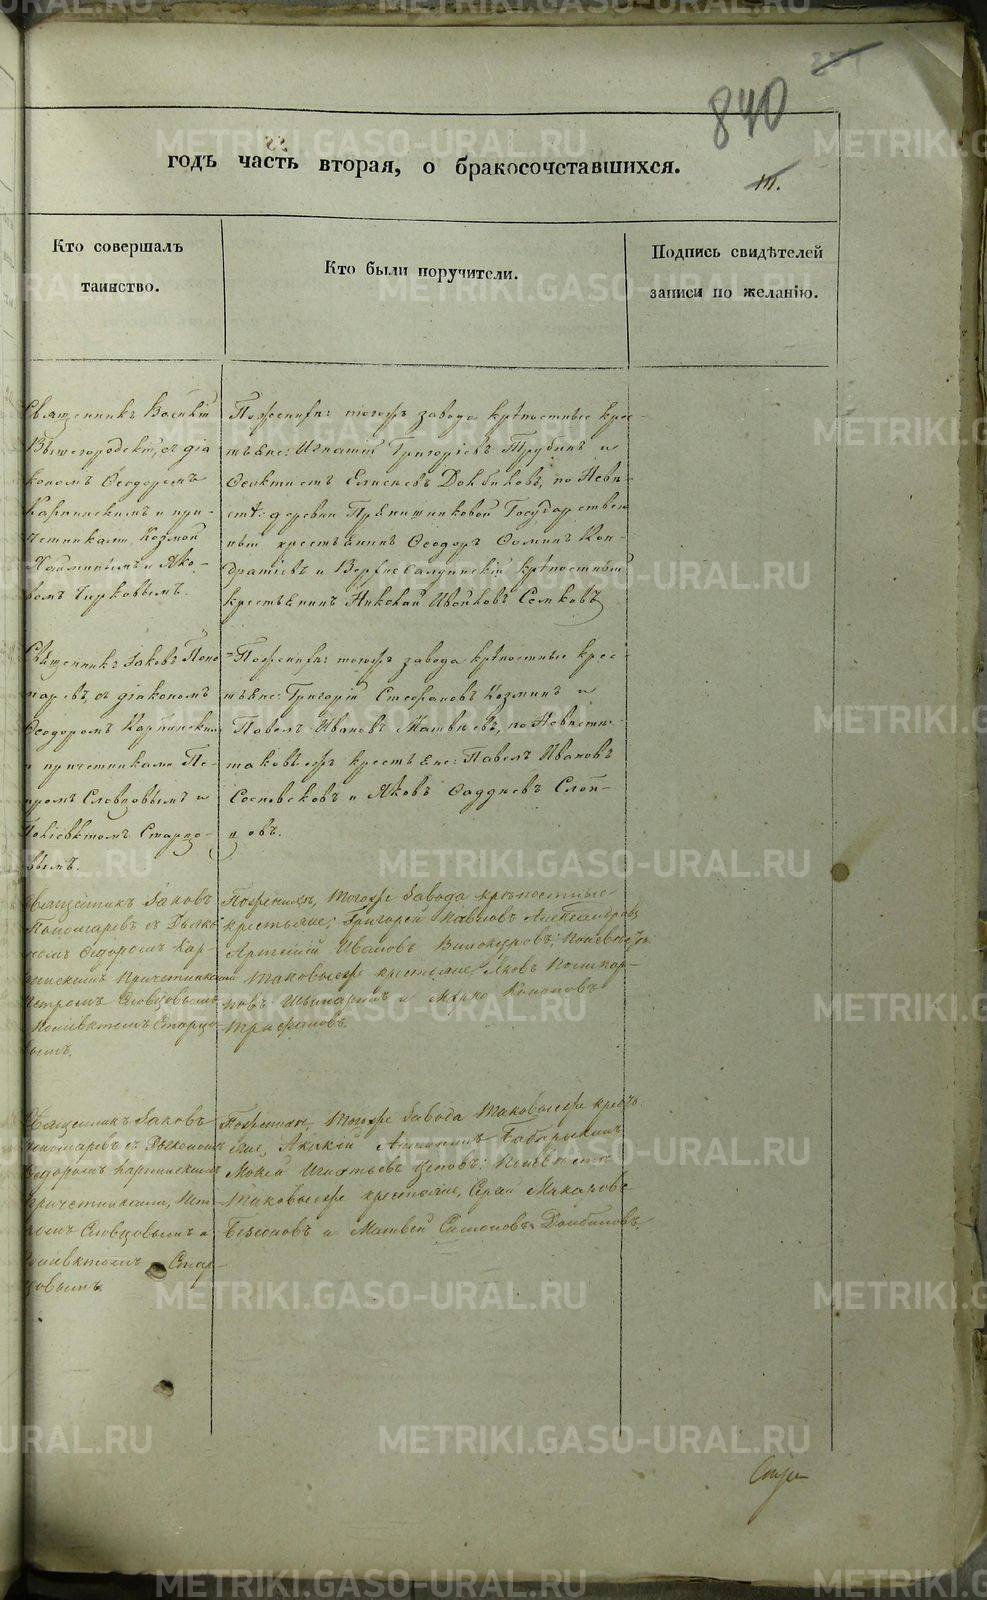 840
годъ часть вторая, о бракосочетавшихся.
Кто совершалъ
таинство.
Кто были поручители.
Подпись свидѣтелей
записи по желанію.
Священникъ Василій
Вышегородскій, съ діа
кономъ Ѳеодоромъ
Карпинскимъ и при-
четниками Козмой
и Яко-
вомъ Чирковымъ.
По женихѣ: тогожъ завода крѣпостные крес-
тьяне: Игнатій Григоріевъ Трубинъ и
Ѳеоктистъ Елисеевъ по Невѣ-
стѣ: деревни Государствен
ный крестьянинъ Ѳеодоръ Ѳоминъ Кон-
дратіевъ и Верхнесалдинскій крѣпостный
крестьянинъ Николай Семковъ
Священникъ Іаковъ Поно
маревъ, съ діакономъ
Ѳеодоромъ Карпинскимъ
и причетниками Пе-
тромъ Словцовымъ и
Поліевктомъ Старцо-
вымъ.
По женихѣ: тогожъ завода крѣпостные крес-
тьяне: Григорій Стефановъ Козминъ и
Павелъ Ивановъ Матвѣевъ, по Невѣстѣ:
таковыежъ крестьяне: Павелъ Ивановъ
и Яковъ Ѳаддеевъ Слоп-
цовъ.
Священникъ Іаковъ
Пономаревъ съ Діако
номъ Ѳедоромъ Кар-
пинскимъ Причетниками
Петромъ Словцовымъ
Поліевктомъ Старцо
вымъ.
По женихѣ, Тогоже Завода крѣпостные
крестьяне; Григорей Павловъ Александровъ
Артемій Ивановъ Винокуровъ; По невѣстѣ
Таковыеже крестьяне Яковъ
и Марко
Трифоновъ.
Священникъ Іаковъ
Пономаревъ съ Діакономъ
Ѳедоромъ Карпинскимъ
Причетниками, Пет
ромъ Словцовымъ и
Поліевктомъ Стар-
цовымъ.
По женихѣ, Тогоже Завода Таковыеже кресть
яне, Акакій Бабарыкинъ
Мокей Игнатьевъ По невѣстѣ
Таковыеже крестьяне, Сергѣй Макаровъ
и Матвей Симоновъ
METRIKI.GASO-URAL.RU